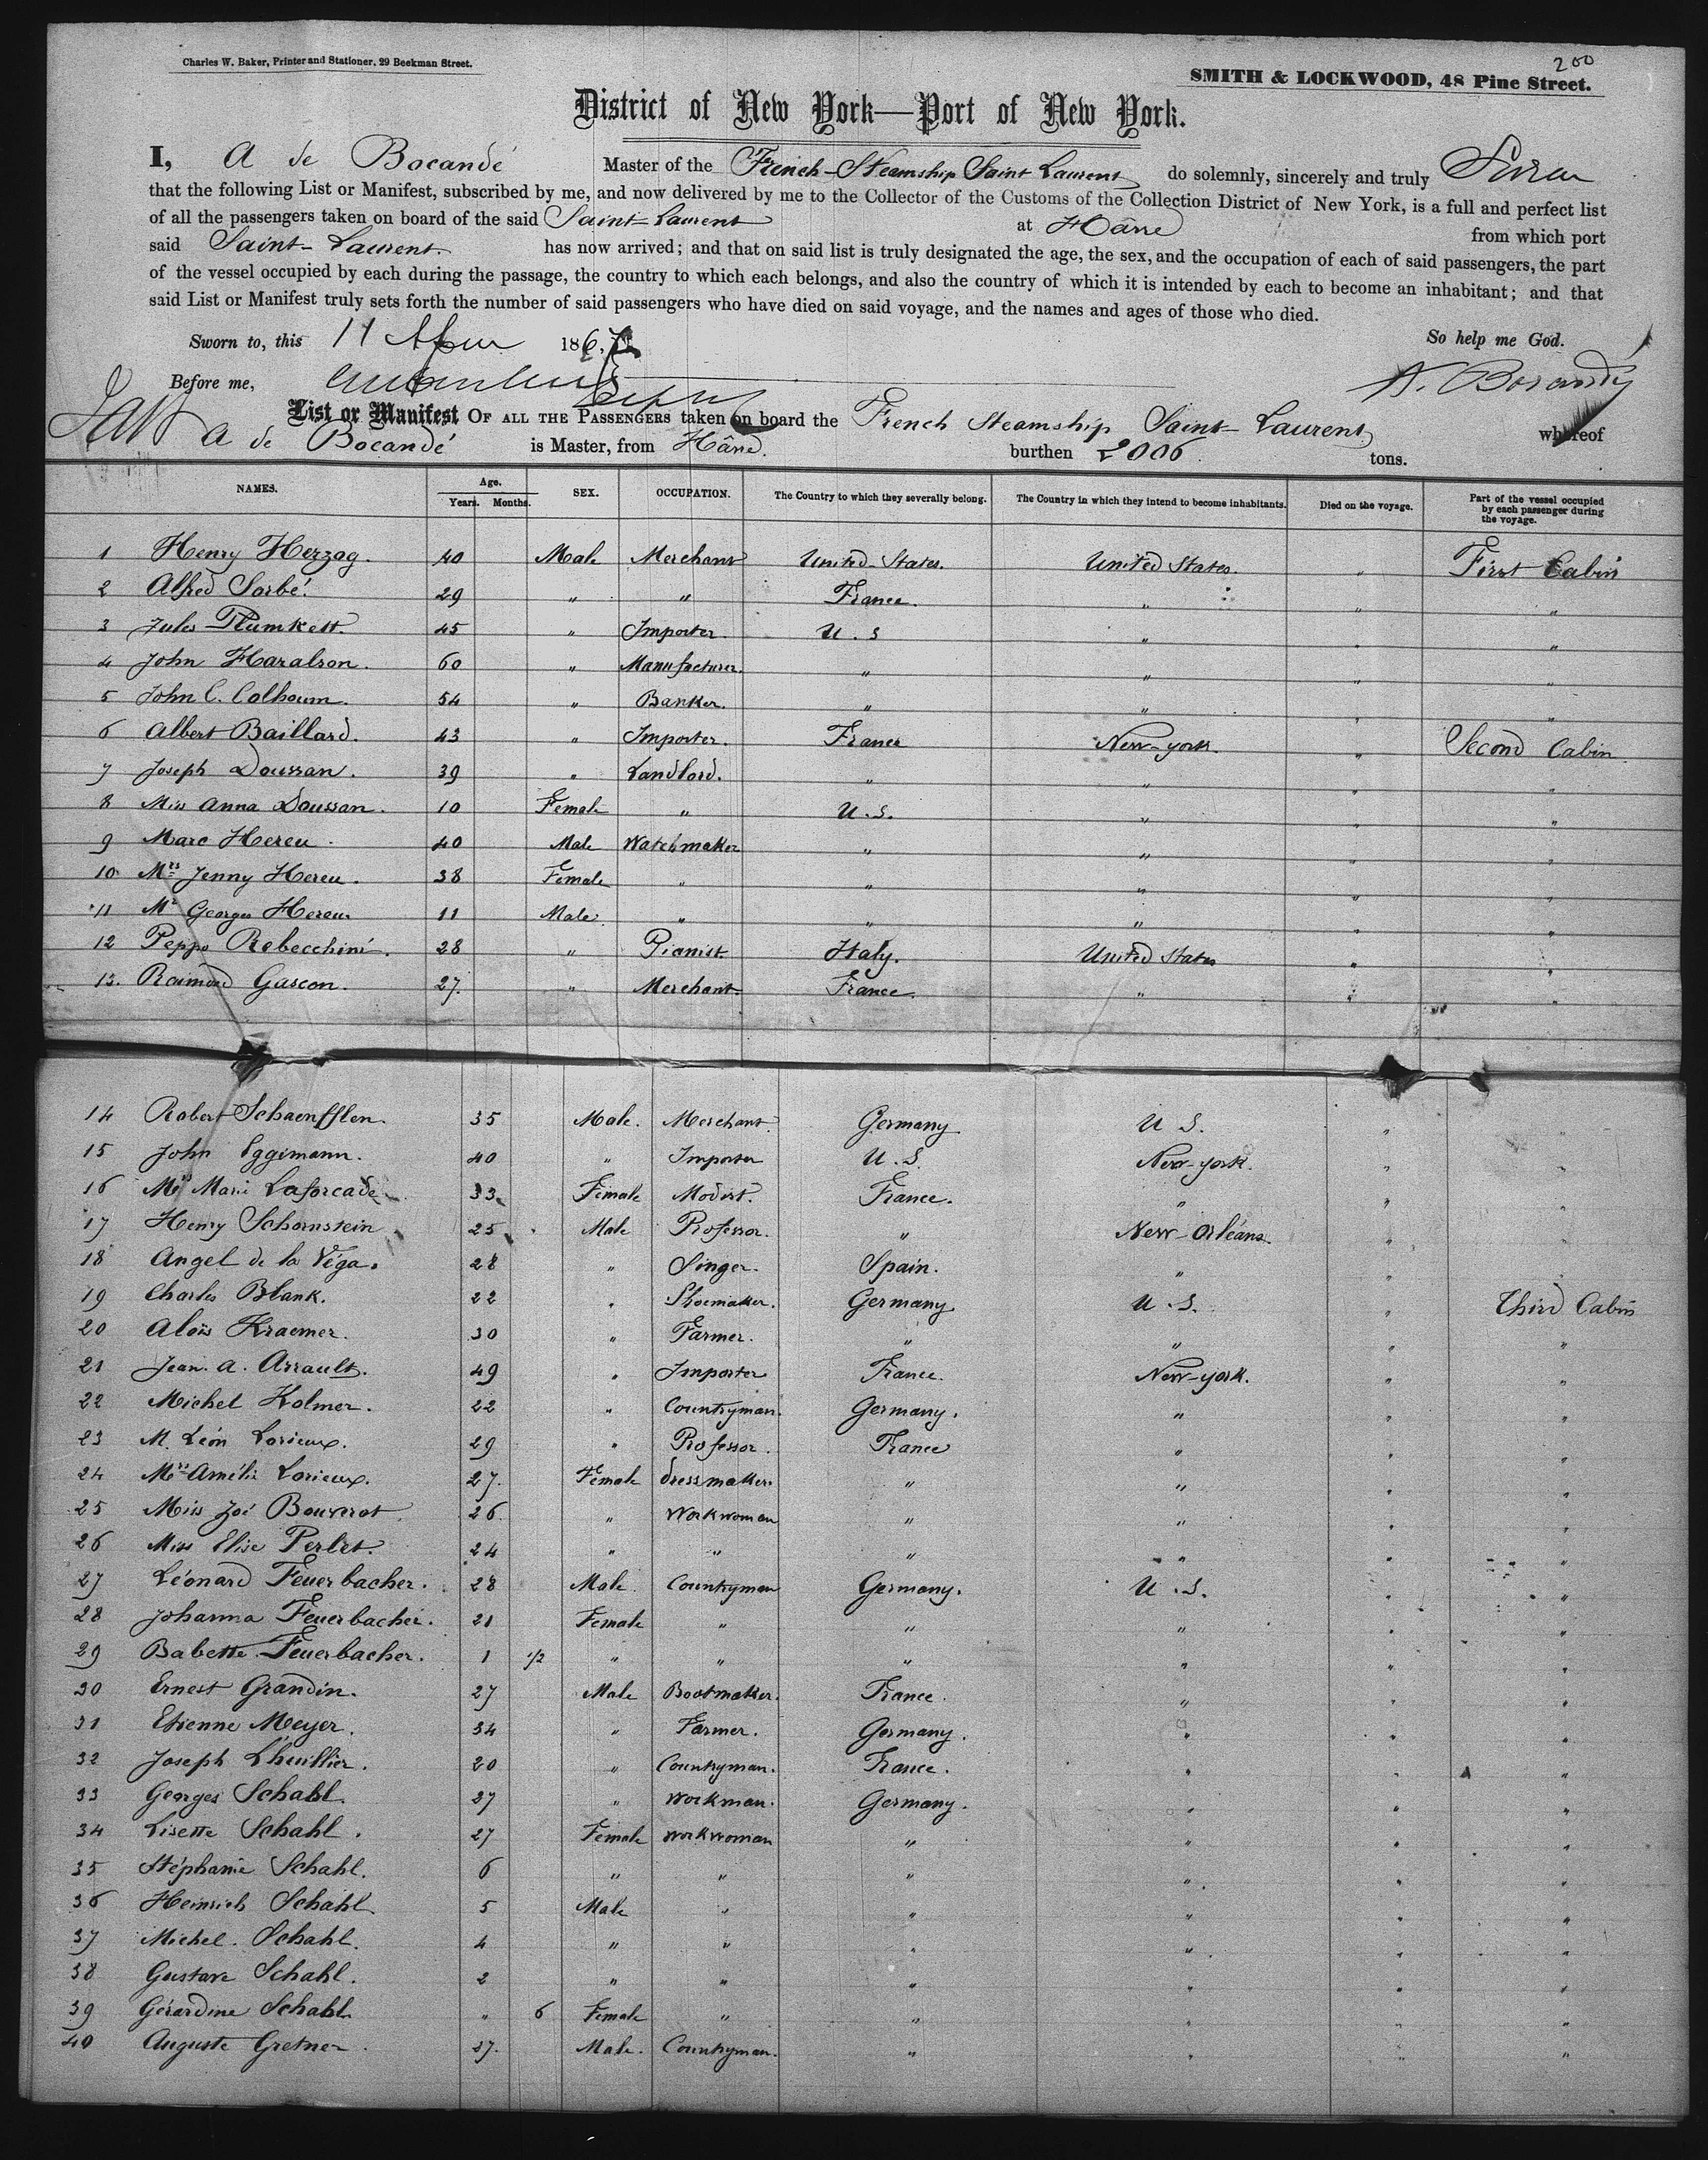 200
Charles W. Baker, Printer and Stationer, 29 Beekman Street.
SMITH & LOCKWOOD, 48 Pine Street.
District of New York—Port of New York.
I, A de Bocandé Master of the French-Steamship Saint Laurent do solemnly, sincerely and truly
that the following List or Manifest, subscribed by me, and now delivered by me to the Collector of the Customs of the Collection District of New York, is a full and perfect list
of all the passengers taken on board of the said Saint-Laurent at Hâvre from which port
said Saint-Laurent. has now arrived; and that on said list is truly designated the age, the sex, and the occupation of each of said passengers, the part
of the vessel occupied by each during the passage, the country to which each belongs, and also the country of which it is intended by each to become an inhabitant; and that
said List or Manifest truly sets forth the number of said passengers who have died on said voyage, and the names and ages of those who died.
Sworn to, this 11 186 So help me God.
Before me,
List or Manifest OF ALL THE PASSENGERS taken on board the French Steamship Saint-Laurent whereof
A de Bocandé is Master, from Hâvre. burthen 2006 tons.
NAMES. Age. Years. Months. SEX. OCCUPATION. The Country to which they severally belong. The Country in which they intend to become inhabitants. Died on the voyage. Part of the vessel occupied by each passenger during the voyage.
1 Henry Herzog. 40 Male Merchant United-States. United States. " First Cabin
2 Alfred Sorbé. 29 " " France. " " "
3 Jules Plumkett. 45 " Importer. U. S " " "
4 John Haralson. 60 " Manufacturer. " " " "
5 John C. Colhoun. 54 " Banker. " " " "
6 Albert Baillard. 43 " Importer. France New-york. " Second Cabin.
7 Joseph Doussan. 39 " Landlord. " " " "
8 Miss Anna Doussan. 10 Female " U.S. " " "
9 Marc Hereu. 40 Male Watchmaker " " " "
10 Mrs Jenny Hereu. 38 Female " " " " "
11 Mr Georges Hereu. 11 Male " " " " "
12 Peppo Rebecchini. 28 " Pianist Italy. United States " "
13. Raimond Gascon. 27. " Merchant. France. " " "
14 Robert Schaenfflen. 35 Male. Merchant. Germany. U S. " "
15 John Eggimann. 40 " Importer U.S. New-york. " "
16 Mrs Marie Laforcade 33 Female Modist. France. " " "
17 Henry Schornstein 25 Male Professor. " New-Orléans. " "
18 Angel de la Véga. 28 " Singer. Spain. " " "
19 Charles Blank. 22 " Shoemaker. Germany U.S. " Third Cabin
20 Aloïs Kraemer. 30 " Farmer. " " " "
21 Jean. A. Arrault. 49 " Importer France. New-york. " "
22 Michel Kolmer. 22 " Countryman. Germany. " " "
23 M. Léon Lorieux. 29 " Professor. France " " "
24 Mrs Amélie Lorieux. 27. Female dressmaker. " " " "
25 Miss Zoé Bouverot. 26 " Workwoman " " " "
26 Miss Elise Perlet. 24 " " " " " "
27 Léonard Feuerbacher. 28 Male. Countryman Germany. U.S. " "
28 Johanna Feuerbacher. 21 Female " " " " "
29 Babette Feuerbacher. 1 1/2 " " " " " "
30 Ernest Grandin. 27 Male Bootmaker. France. " " "
31 Etienne Meyer. 34 " Farmer. Germany. " " "
32 Joseph Lhuillier. 20 " Countryman. France. " " "
33 Georges Schahl. 27 " Workman. Germany. " " "
34 Lisette Schahl. 27 Female Workwoman " " " "
35 Stéphanie Schahl. 6 " " " " " "
36 Heinrich Schahl. 5 Male " " " " "
37 Michel. Schahl. 4 " " " " " "
38 Gustave Schahl. 2 " " " " " "
39 Gérardine Schahl. " 6 Female " " " " "
40 Auguste Gretner. 27. Male. Countryman. " " " "